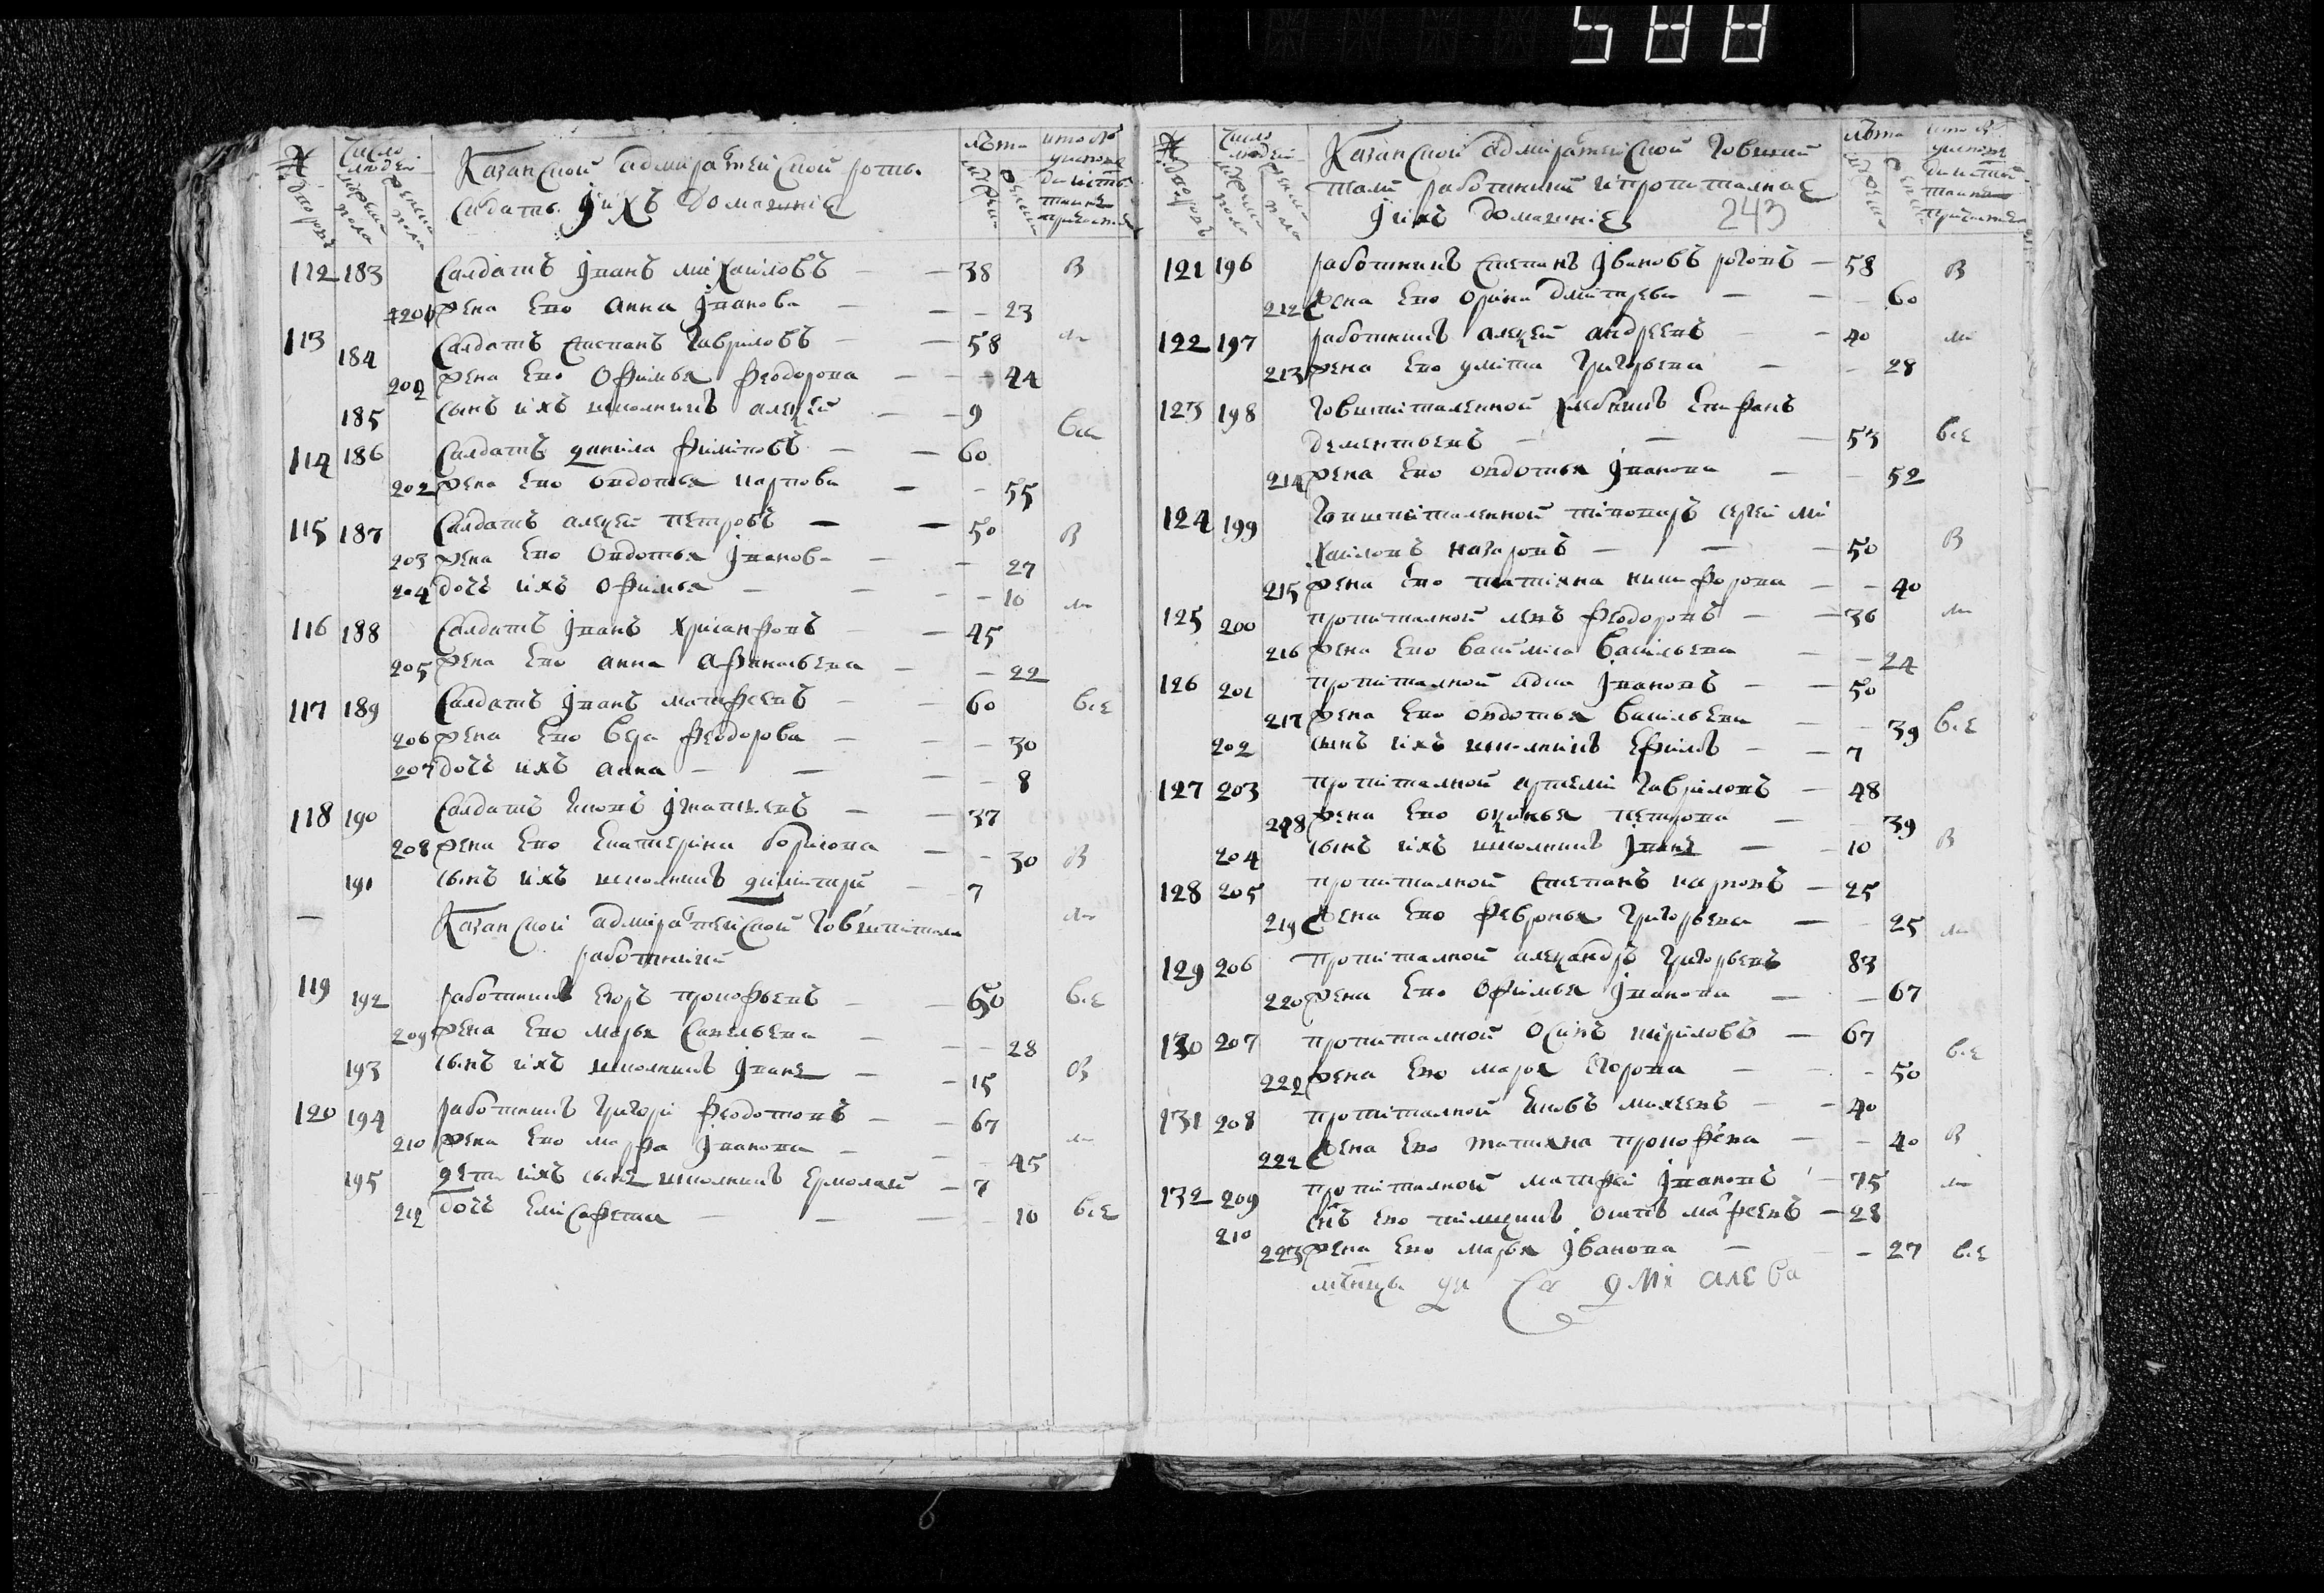 588
№ дворовъ
Число людей
мужеска пола
женска пола
Казанской адмиралтейской роты
салдаты и ихъ домашние
лѣта
мужеска
женска
112 183 Салдатъ Іванъ Михаиловъ — 38 В
201 жена ево Анна Іванова — 23
113 184 Салдатъ Степанъ Гавриловъ — 58
202 жена ево Офимья Феодорова — 44
185 сынъ ихъ школникъ Алеѯей — 9
114 186 Салдатъ Данила Филиповъ — 60 все
202 жена ево Овдотья Карпова — 55
115 187 Салдатъ Алеѯей Петровъ — 50 В
203 жена ево Овдотья Іванова — 27
204 дочь ихъ Офимья — 10
116 188 Салдатъ Іванъ Хрисанфовъ — 45
205 жена ево Анна Афанасьева — 22
117 189 Салдатъ Іванъ Матфеевъ — 60 все
206 жена ево Вера Феодорова — 30
207 дочь ихъ Анна — 8
118 190 Салдатъ Іаковъ Ігнатьевъ — 37
208 жена ево Екатерина Борисова — 30 В
191 сынъ ихъ школникъ Димитрий — 7
Казанской адмиралтейской говшпитали
работники
119 192 работникъ Егоръ Прокофьевъ — 60 все
209 жена ево Марья Савельева — 28
193 сынъ ихъ школникъ Іванъ — 15 В
120 194 работникъ Григорей Феодотовъ — 67
210 жена ево Марфа Іванова — 45
195 дети ихъ сынъ школникъ Ермолай — 7
212 дочь Елисафета — 10 все
№ дворовъ
Число людей
мужеска пола
женска пола
Казанской адмиралтейской говшпи
тали работники и пропиталные
и ихъ домашние 243
лѣта
121 196 работникъ Степанъ Івановъ Роговъ — 58 В
212 жена ево Орина Дмитрева — 60
122 197 работникъ Алеѯей Андреевъ — 40
213 жена ево Улита Григорьева — 28
123 198 Говшпиталенной хлебникъ Епифанъ
Дементьевъ — 53 все
214 жена ево Овдотья Іванова — 52
124 199 Говшпиталенной поваръ Сергей Ми
хаиловъ Назаровъ — 50 В
215 жена ево Татияна Никифорова — 40
125 200 пропиталной Левъ Феодоровъ — 36
216 жена ево Василиса Васильева — 24
126 201 пропиталной Адам Івановъ — 50
217 жена ево Овдотья Васильева — 39 все
202 сынъ ихъ школникъ Ефимъ — 7
127 203 пропиталной Артемей Гавриловъ — 48
218 жена ево Оѯинья Петрова — 39
204 сынъ ихъ школникъ Іванъ — 10 В
128 205 пропиталной Степанъ Карповъ — 25
219 жена ево Февронья Григорьева — 25
129 206 пропиталной Алеѯандръ Григорьевъ 83
220 жена ево Офимья Іванова — 67
130 207 пропиталной Осипъ Кириловъ — 67 все
221 жена ево Марья Егорова — 50
131 208 пропиталной Іаковъ Михеевъ — 40
222 жена ево Татияна Прокофева — 40 В
132 209 пропиталной Матфей Івановъ — 75
210 снъ ево Осипъ Матфеевъ — 28
223 жена ево Марья Іванова — 27 все